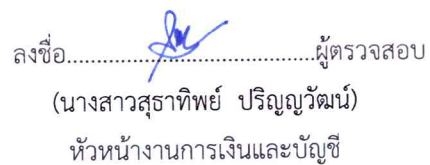 ลงชื่อ......................................ผู้ตรวจสอบ
(นางสาวสุธาทิพย์ ปริญญวัฒน์)
หัวหน้างานการเงินและบัญชี